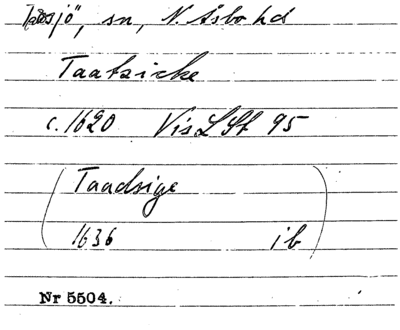 Tåssjö, sn, N. Åsbo hd
Taatzicke
c. 1620 Vis L St 95
(Taadsige
1636 ib)
Nr 5504.